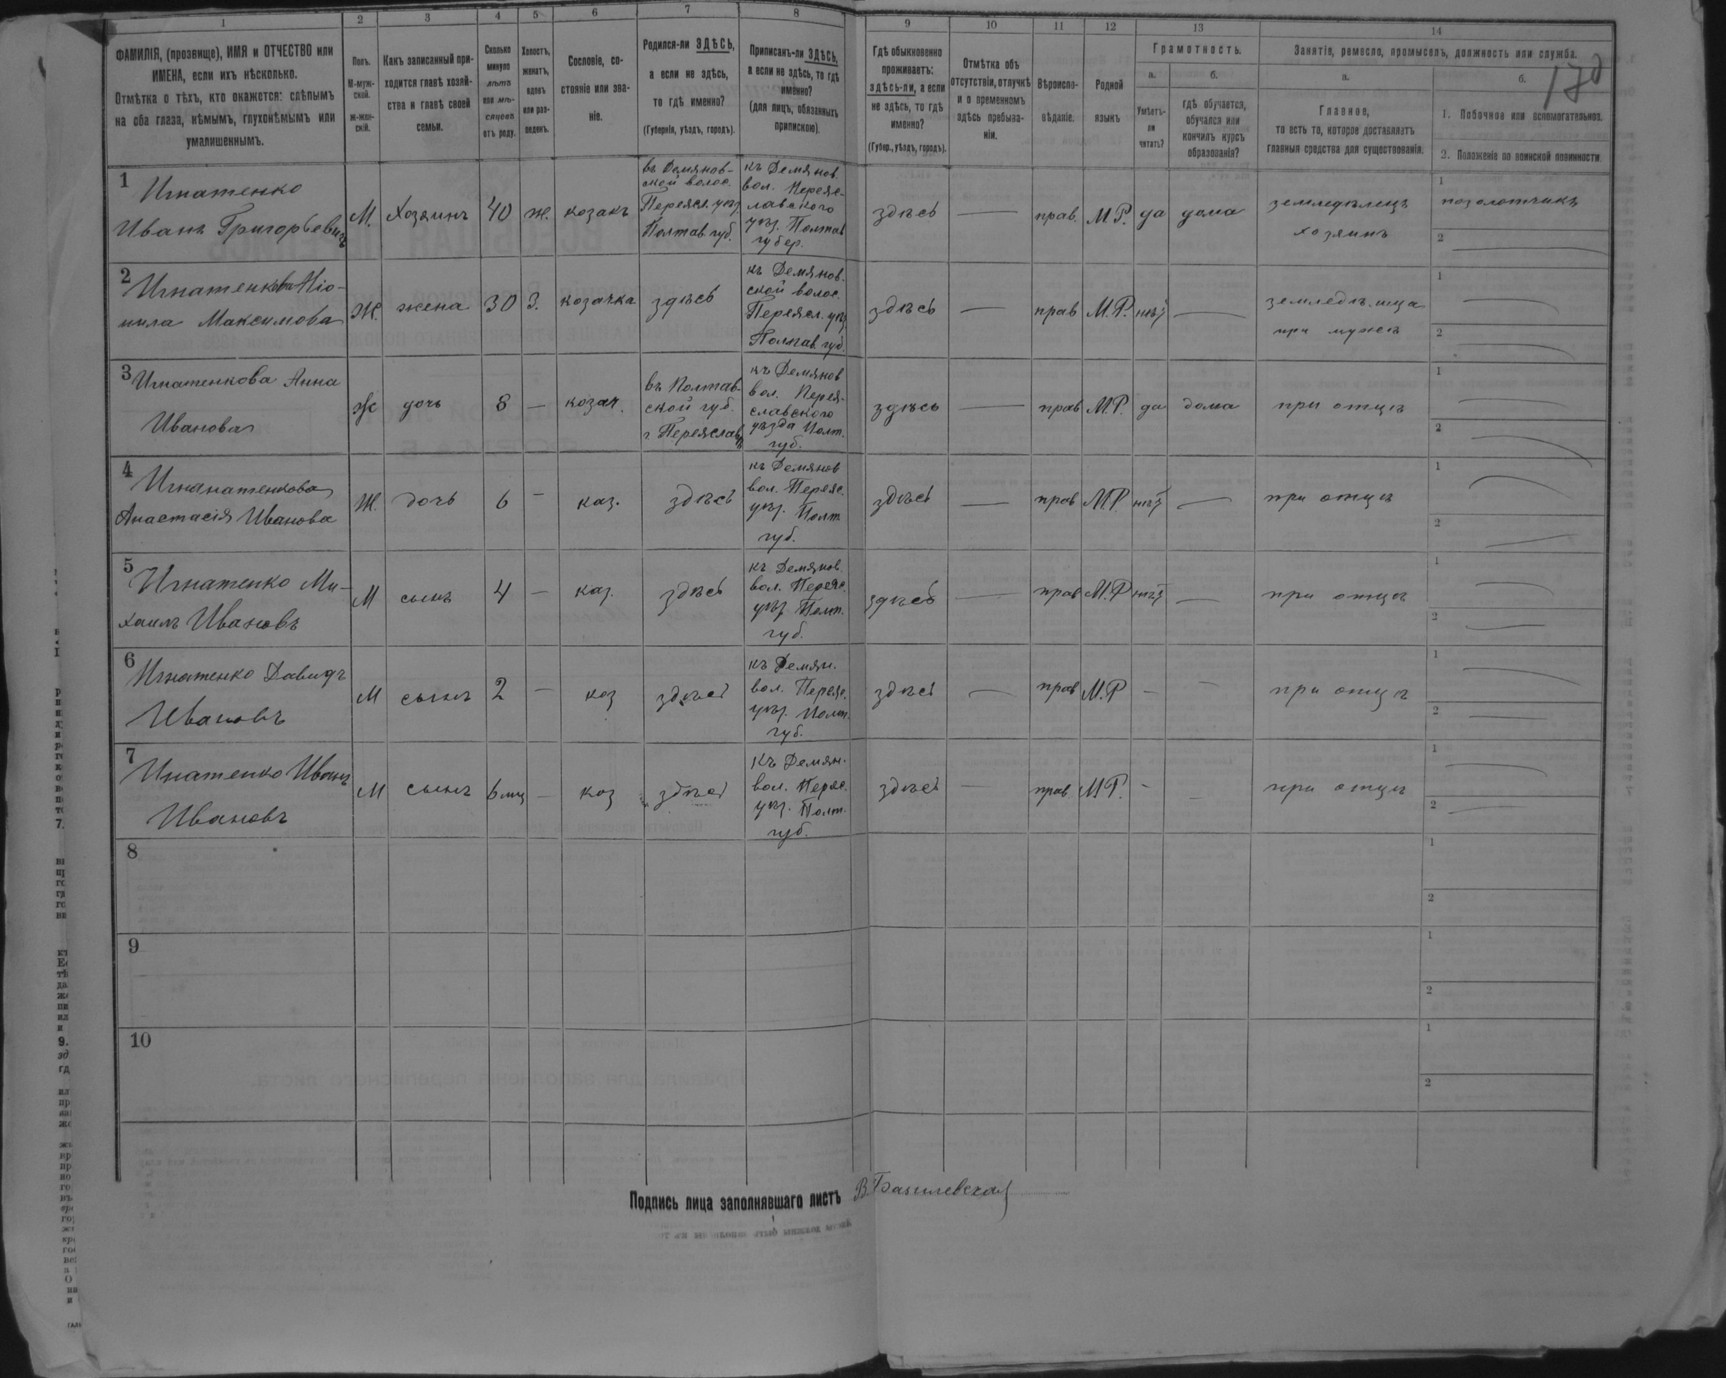 170
1 2 3 4 5 6 7 8 9 10 11 12 13 14
ФАМИЛІЯ, (прозвище), ИМЯ и ОТЧЕСТВО или
ИМЕНА, если ихъ нѣсколько.
Отмѣтка о тѣхъ, кто окажется: слѣпымъ
на оба глаза, нѣмымъ, глухонѣмымъ или
умалишеннымъ.
Полъ.
М-муж-
ской.
Ж-жен-
скій.
Какъ записанный при-
ходится главѣ хозяй-
ства и главѣ своей
семьи.
Сколько
минуло
лѣтъ
или мѣ-
сяцевъ
отъ роду.
Холостъ,
женатъ,
вдовъ
или раз-
веденъ.
Сословіе, со-
стояніе или зва-
ніе.
Родился-ли ЗДѢСЬ,
а если не здѣсь,
то гдѣ именно?
(Губернія, уѣздъ, городъ).
Приписанъ-ли ЗДѢСЬ,
а если не здѣсь, то гдѣ
именно?
(для лицъ, обязанныхъ
припискою).
Гдѣ обыкновенно
проживаетъ:
здѣсь-ли, а если
не здѣсь, то гдѣ
именно?
(Губер., уѣздъ, городъ).
Отмѣтка объ
отсутствіи, отлучкѣ
и о временномъ
здѣсь пребыва-
ніи.
Вѣроиспо-
вѣданіе.
Родной
языкъ
Грамотность.
а.
Умѣетъ-
ли
читать?
б.
гдѣ обучается,
обучался или
кончилъ курсъ
образованія?
Занятіе, ремесло, промыселъ, должность или служба.
а.
Главное,
то есть то, которое доставляетъ
главныя средства для существованія.
б.
1. Побочное или вспомогательное.
2. Положеніе по воинской повинности
1 Игнатенко
Иванъ Григорьевичъ
М.
Хозяинъ
40
ж.
козакъ
въ Демянов-
ской волос.
Переясл. уѣз.
Полтав. губ.
къ Демянов.
вол. Переяс-
лавского
уѣз. Полтав
губер.
здѣсь
прав.
М.Р.
да
дома
земледѣлецъ
хозяинъ
1
позолотчикъ
2
2 Игнатенкова
Максимова
Ж.
жена
30
З.
козачка
здѣсь
къ Демянов.
ской волос.
Переясл. уѣз.
Полтав. губ.
здѣсь
прав
М.Р.
нѣт
при мужѣ
1
2
3 Игнатенкова Анна
Иванова
Ж
дочь
8
козач.
въ Полтав-
ской губ.
къ Демянов
вол. Перея-
славского
уѣзда Полт.
губ.
здѣсь
прав
М.Р.
да
дома
при отцѣ
1
2
4 Игнанатенкова
Анастасія Иванова
Ж.
дочь
6
каз.
здѣсь
къ Демянов
вол. Переяс.
уѣз. Полт
губ.
здѣсь
прав
М.Р
нѣт
при отцѣ
1
2
5 Игнатенко Ми-
хаилъ Ивановъ
М
сынъ
4
каз.
здѣсь
къ Демянов.
вол. Переяс.
уѣз. Полт.
губ.
здѣсь
прав
М.Р
нѣт
при отцѣ
1
2
6 Игнатенко Давидъ
Ивановъ
М
сынъ
2
коз
здѣсь
къ Демян.
вол. Переяс.
уѣз. Полт.
губ.
здѣсь
прав
М.Р
при отцѣ
1
2
7 Инатенко Иванъ
Ивановъ
М
сынъ
6 мц
коз
здѣсь
къ Демян.
вол. Переяс.
уѣз. Полт.
губ.
здѣсь
прав
М.Р.
при отцѣ
1
2
8
1
2
9
1
2
10
1
2
Подпись лица заполнявшаго листъ